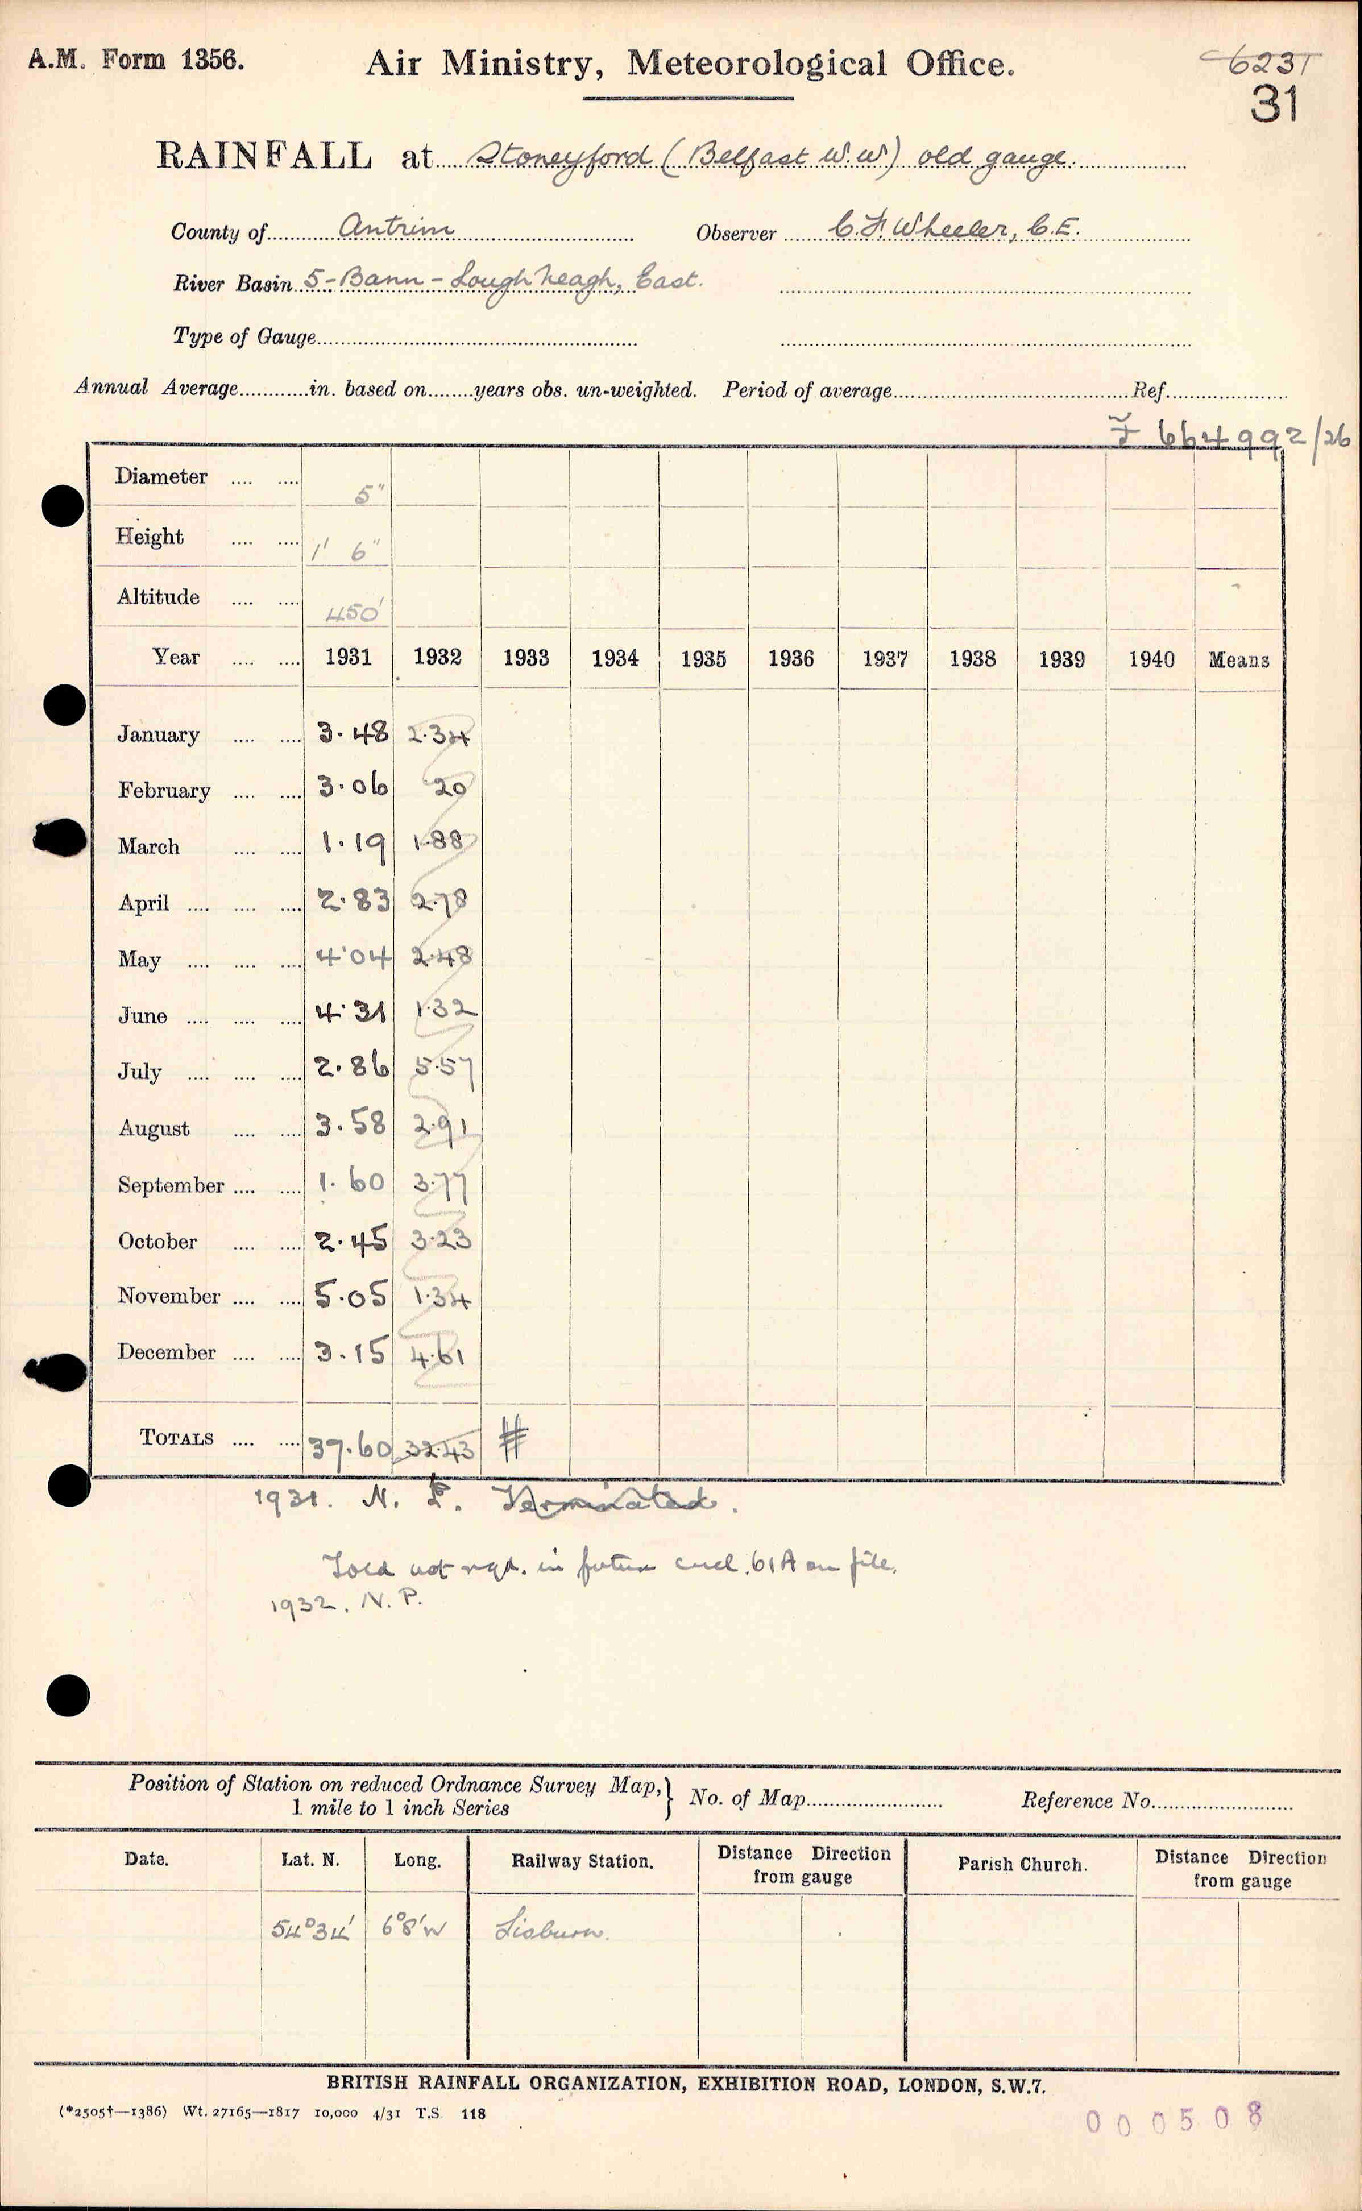 A.M. Form 1356.
Air Ministry, Meteorological Office.
6231
31
RAINFALL at Stoneyford (Belfast W.W) old gauge.
County of Antrim Observer C.F. Wheeler, C.E.
River Basin 5-Bann-Lough Neagh, East.
Type of Gauge
Annual Average in. based on years obs. un-weighted. Period of average Ref.
664992/26
Diameter 5"
Height 1' 6"
Altitude 450'
Year 1931 1932 1933 1934 1935 1936 1937 1938 1939 1940 Means
January 3.48 2.34
February 3.06 .20
March 1.19 1.88
April 2.83 2.78
May 4.04 2.48
June 4.31 1.32
July 2.86 5.57
August 3.58 2.91
September 1.60 3.77
October 2.45 3.23
November 5.05 1.34
December 3.15 4.61
TOTALS 37.60 32.43 #
1931. N. P. Terminated.
Told not reqd. in future encl. 61A on file.
1932. N. P.
Position of Station on reduced Ordnance Survey Map, } No. of Map Reference No.
1 mile to 1 inch Series
Date. Lat. N. Long. Railway Station. Distance Direction from gauge Parish Church. Distance Direction from gauge
54°34' 6°8'W Lisburn.
BRITISH RAINFALL ORGANIZATION, EXHIBITION ROAD, LONDON, S.W.7.
(*2505†—1386) Wt. 27165—1817 10,000 4/31 T.S. 118
000508